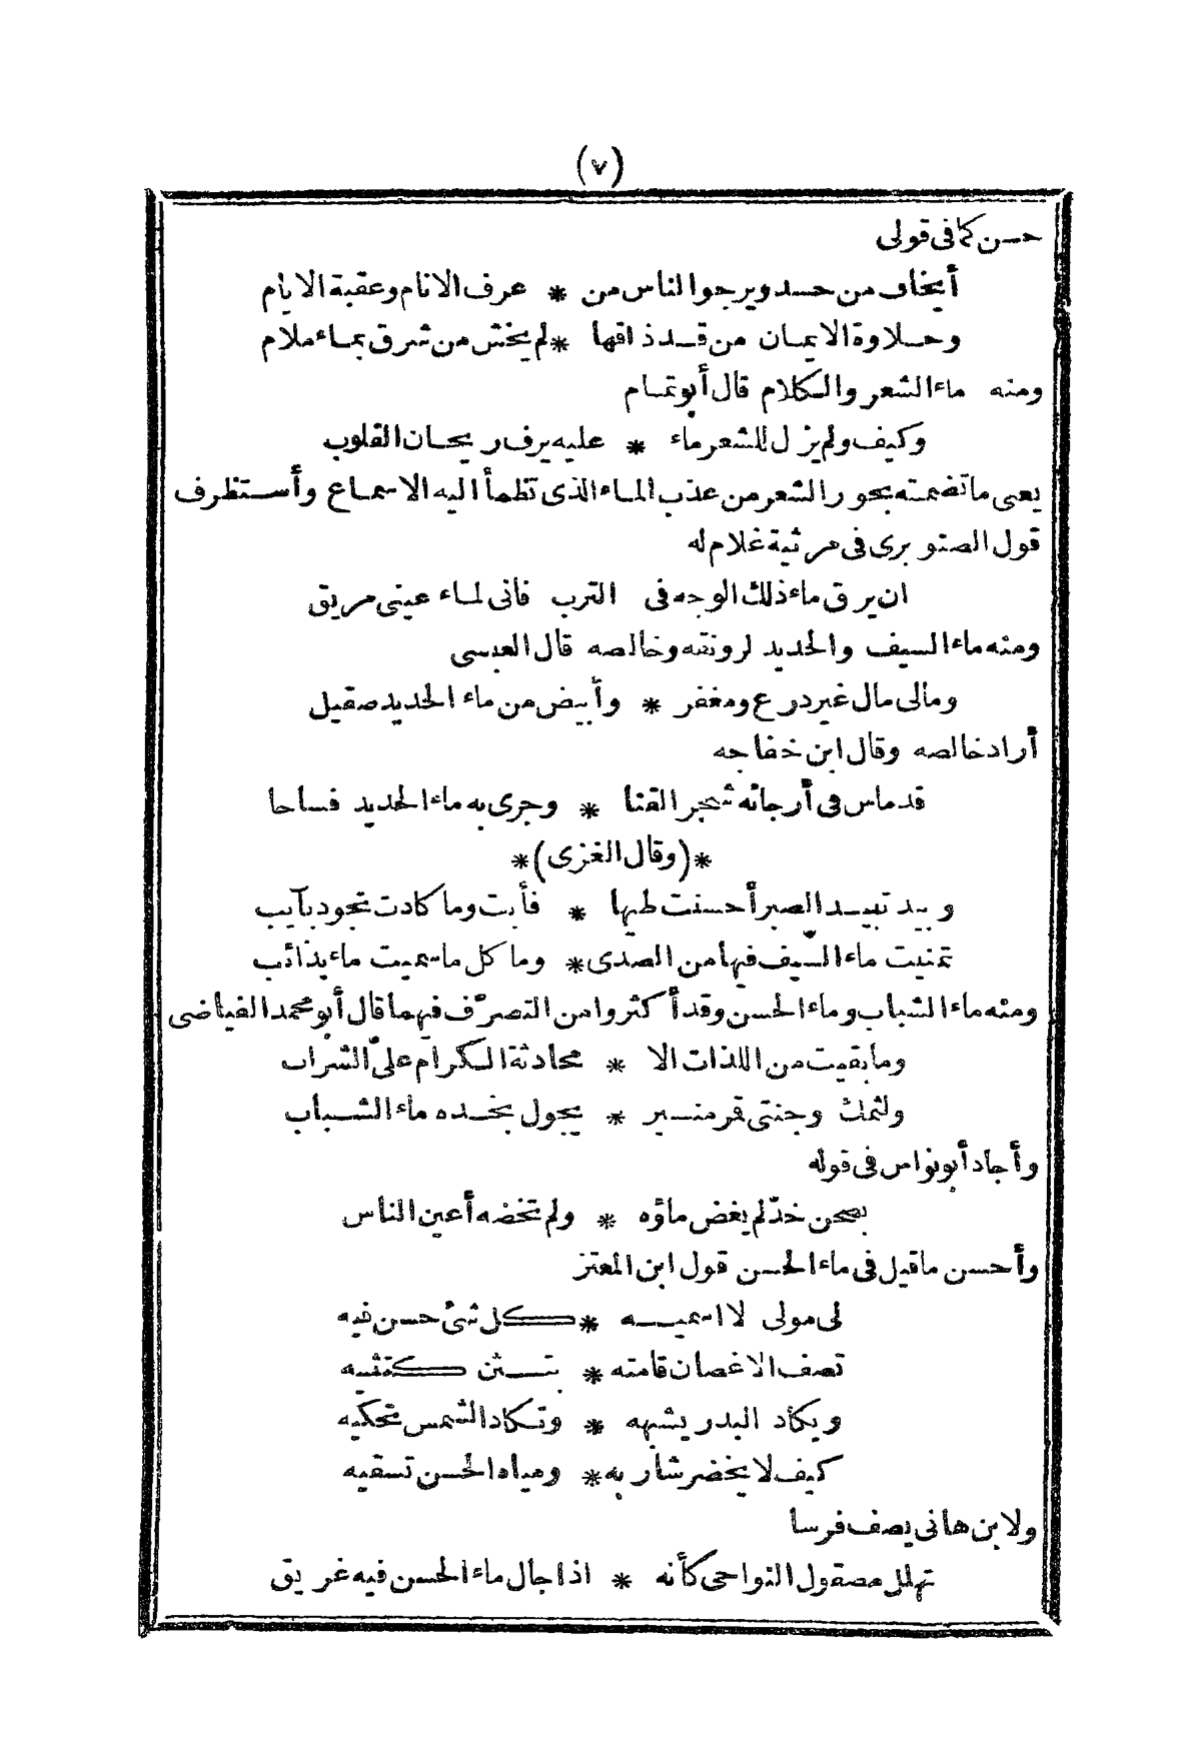 (٧)
حسن كما فى قولى
أيخاف من حسد ويرجوا لناس من * عرف الانام وعقبة الايام
وحلاوة الايمان من قد ذاقها * لم يخش من شرق بماء ملام
ومنه ماء الشعر والكلام قال أبو تمام
وكيف ولم يزل للشعر ماء * عليه يرف ريحان القلوب
يعنى ما تضمنته بحور الشعر من عذب الماء الذى تظمأ اليه الاسماع وأستظرف
قول الصنوبرى فى مرثية غلام له
ان يرق ماء ذلك الوجه فى الترب فانى لماء عينى مريق
ومنه ماء السيف والحديد لرونقه وخالصه قال العبسى
ومالى مال غير درع ومغفر * وأبيض من ماء الحديد صقيل
أراد خالصه وقال ابن خفاجه
قد ماس فى أرجائه شجر القنا * وجرى به ماء الحديد فساحا
*(وقال الغزى)*
وبيد تبيد الصبر أحسنت طيها * فأبت وما كادت تجود بآيب
تمنيت ماء السّيف فيها من الصدى* وما كل ما سميت ماء بذائب
ومنه ماء الشباب وماء الحسن وقد أكثروا من التصرّف فيهما قال أبو محمد الفياضى
وما بقيت من اللذات الا * محادثة الكرام علىّ الشراب
ولثمك وجنتى قمر منير * يجول بخده ماء الشباب
وأجاد أبو نواس فى قوله
بصحن خدّ لم يغض ماؤه * ولم تخضه أعين الناس
وأحسن ما قيل فى ماء الحسن قول ابن المعتز
لى مولى لا اسميه * كل شئ حسن فيه
تصف الاغصان قامته * بتثن كتثنيه
ويكاد البدر يشبهه * وتكاد الشمس تحكيه
كيف لا يخضر شاربه * ومياه الحسن تسقيه
ولابن هانى يصف فرسا
تهلل مصقول النواحى كأنه * اذا جال ماء الحسن فيه غريق